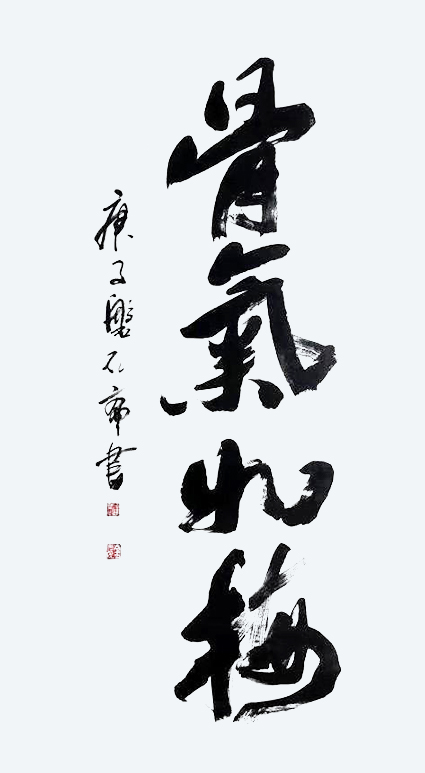 骨氣如梅
庚子盤石齋書